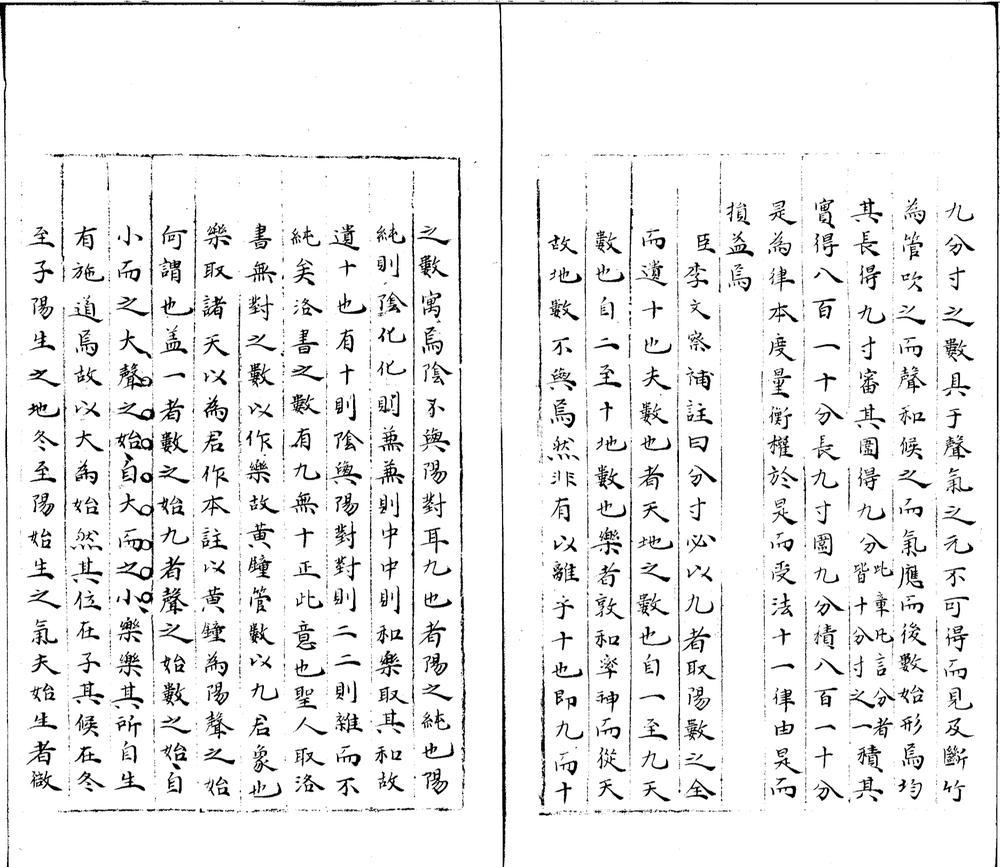 九分寸之數具于聲氣之元不可得而見及斷竹
為管吹之而聲和候之而氣應而後數始形焉均
其長得九寸審其圍得九分此章凡言分者皆十分寸之一積其
實得八百一十分長九寸圍九分積八百一十分
是為律本度量衡權於是而受法十一律由是而
損益焉
臣李文察補註曰分寸必以九者取陽數之全
而遺十也夫數也者天地之數也自一至九天
數也自二至十地數也樂者敦和率神而從天
故地數不與焉然非有以離乎十也即九而十
之數寓焉陰不與陽對耳九也者陽之純也陽
純則陰化化則兼兼則中中則和樂取其和故
遺十也有十則陰與陽對對則二二則雜而不
純矣洛書之數有九無十正此意也聖人取洛
書無對之數以作樂故黃鐘管數以九君象也
樂取諸天以為君作本註以黃鐘為陽聲之始
何謂也盖一者數之始九者聲之始數之始自
小而之大聲之始自大而之小樂樂其所自生
有施道焉故以大為始然其位在子其候在冬
至子陽生之地冬至陽始生之氣夫始生者微